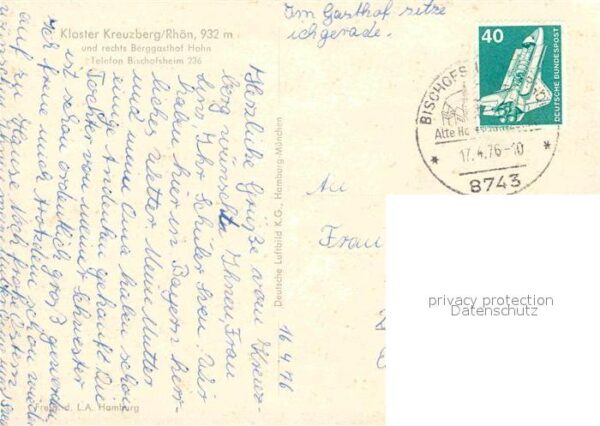 Kloster Kreuzberg/Rhön, 932 m
und rechts Berggasthof Hohn
Telefon Bischofsheim 236
Im Gasthof sitze
ich gerade.
40
DEUTSCHE BUNDESPOST
BISCHOFS
Alte
17.4.76-10
8743
16 4 76
Herzliche Grüße vom Kreuz-
berg wünscht Ihnen, Frau
Ihr Schüler Sven. Wir
haben hier in Bayern herr-
liches Wetter. Meine Mutter
und meine Oma haben schon
einige Andenken gekauft. Die
Tochter von meiner Schwester
ist schon ordentlich groß geworden.
Ich freue mich trotzdem schon wieder
auf zu Hause. Noch frohe Ostern
An
Frau
Deutsche Luftbild K.G., Hamburg-München
Freig. d. L.A. Hamburg
privacy protection
Datenschutz